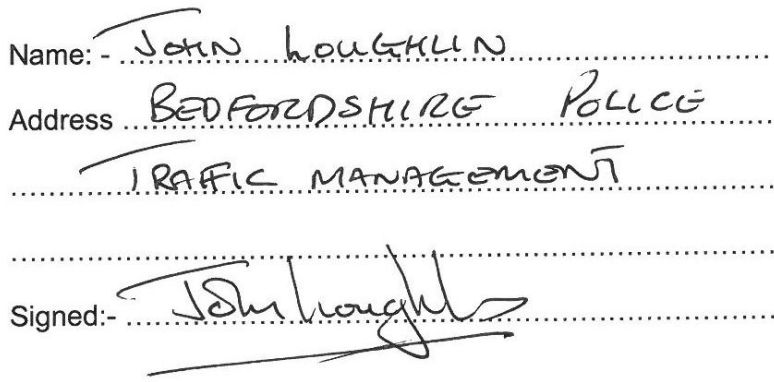 Name: - JOHN LOUGHLIN
Address BEDFORDSHIRE POLICE
TRAFFIC MANAGEMENT
Signed:- John Loughlin